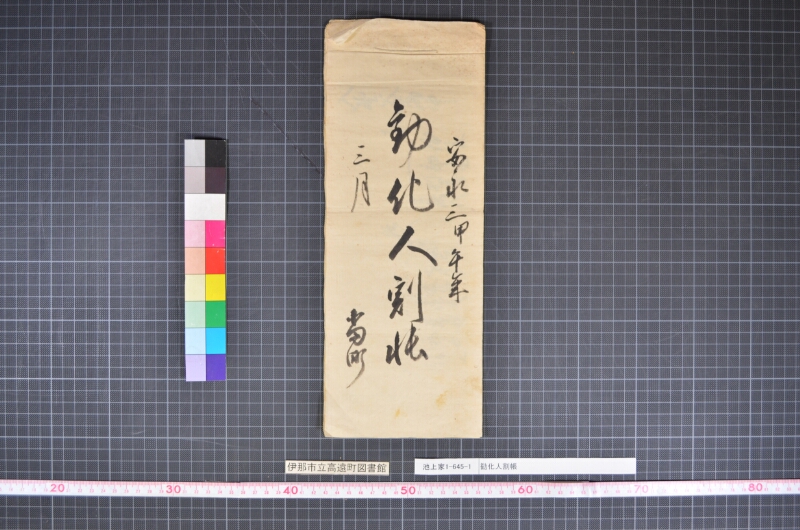 安永三甲午年
勧化人割帳
三月
当町
伊那市立高遠町図書館
池上家1-645-1 勧化人割帳
20 30 40 50 60 70 80